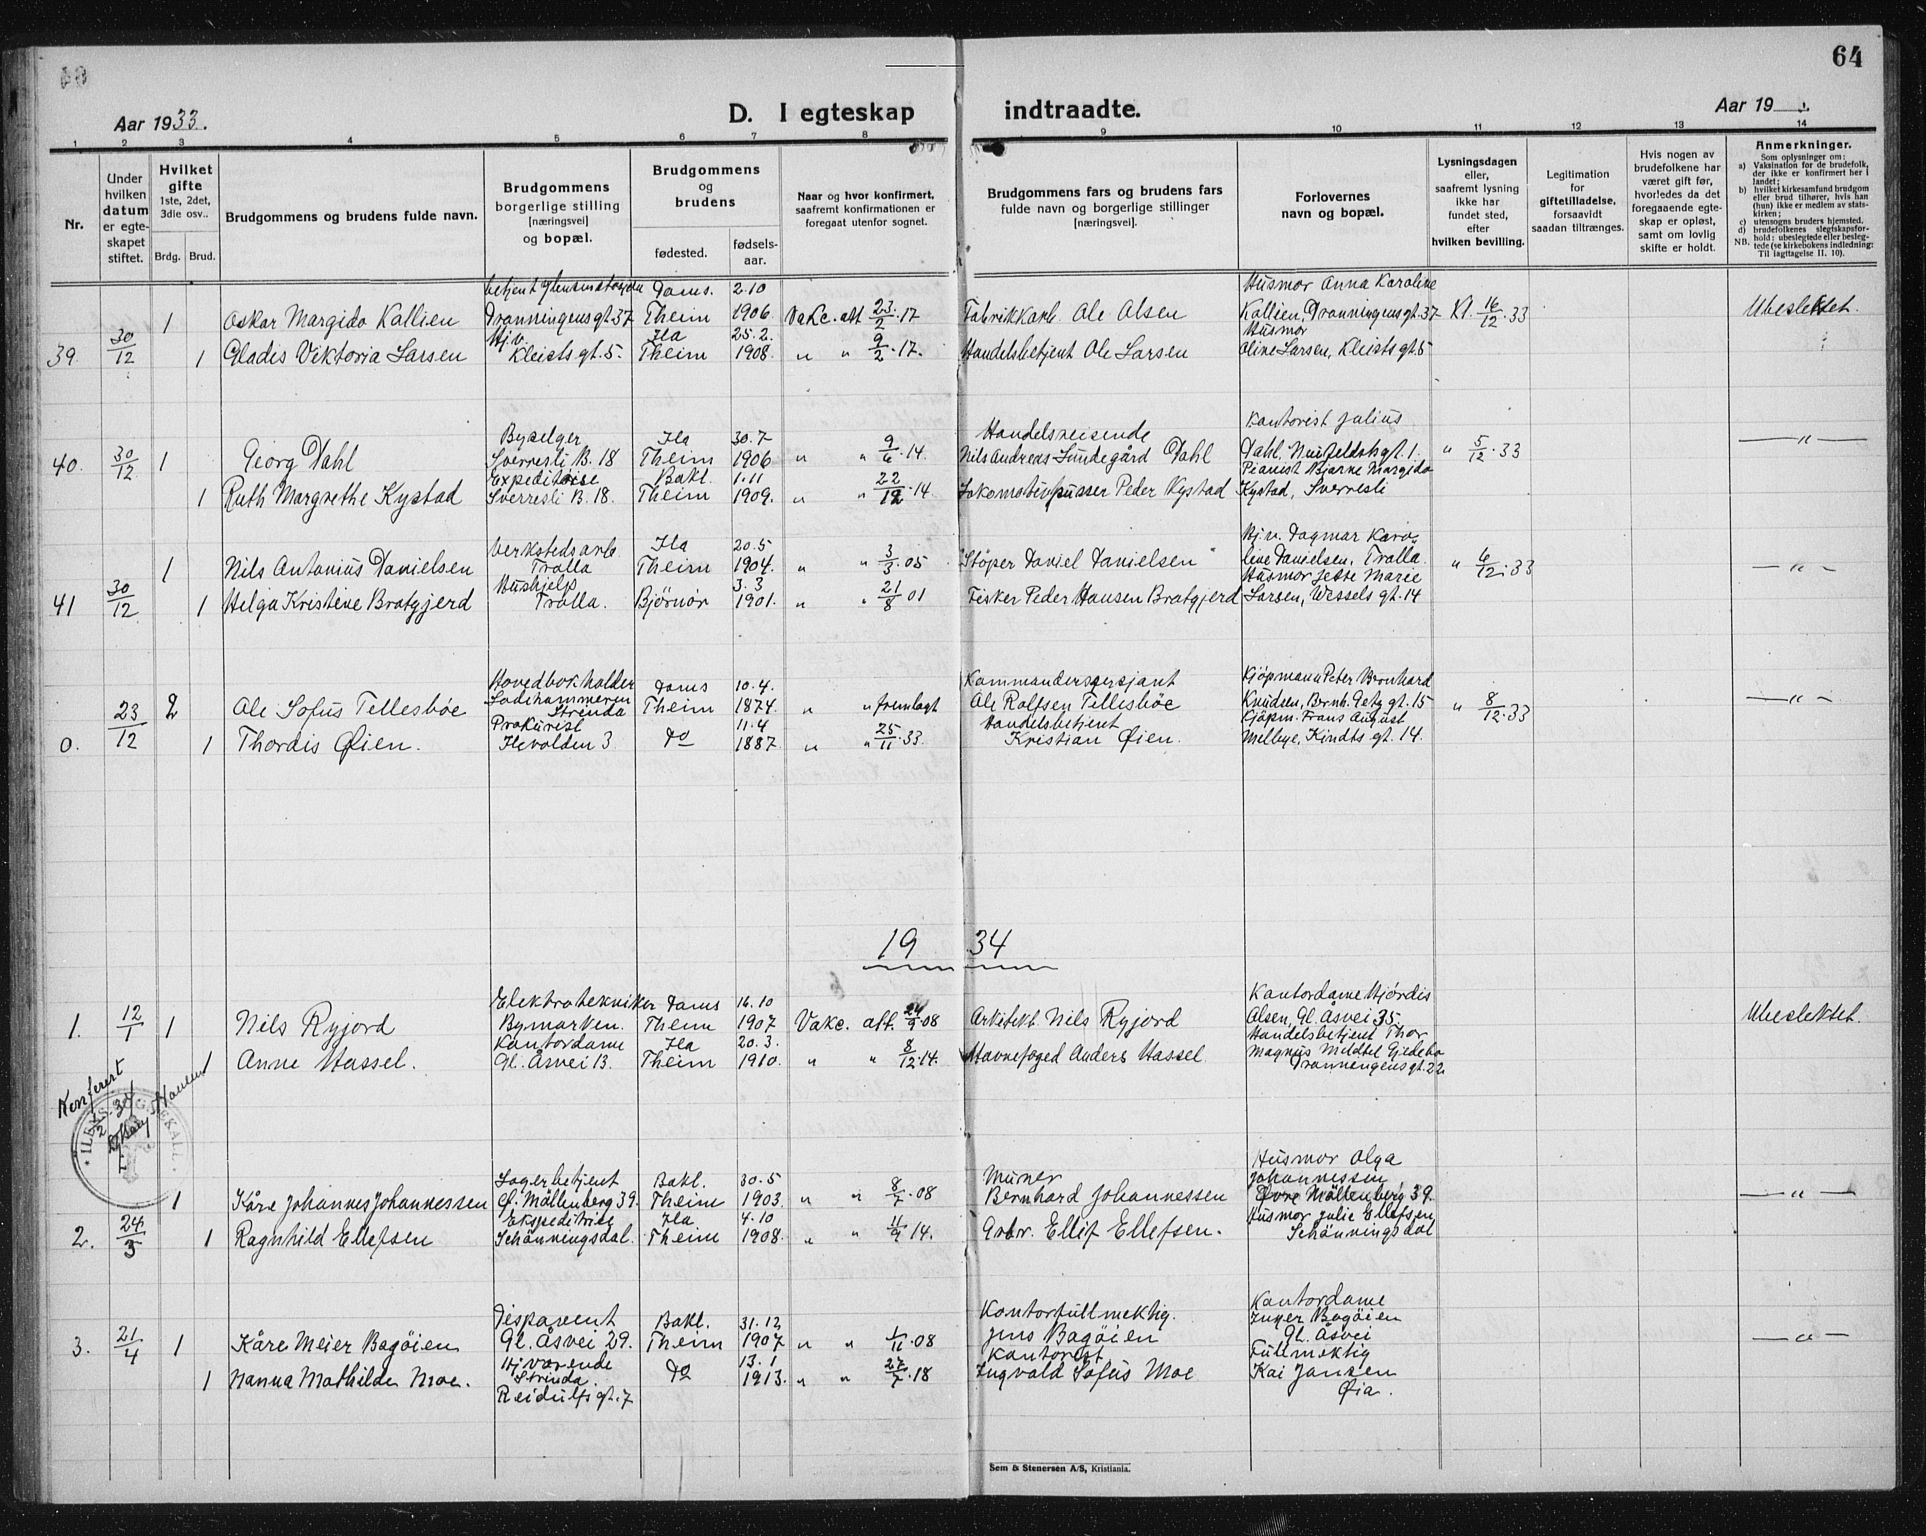 64
Aar 1933.
D. I egteskap indtraadte.
Aar 19
1 2 3 4 5 6 7 8 9 10 11 12 13 14
Nr.
Under hvilken datum er egteskapet stiftet.
Hvilket gifte 1ste, 2det, 3die osv..
Brdg. Brud.
Brudgommens og brudens fulde navn.
Brudgommens borgerlige stilling [næringsvei] og bopæl.
Brudgommens og brudens
fødested. fødselsaar.
Naar og hvor konfirmert, saafremt konfirmationen er foregaat utenfor sognet.
Brudgommens fars og brudens fars fulde navn og borgerlige stillinger [næringsvei].
Forlovernes navn og bopæl.
Lysningsdagen eller, saafremt lysning ikke har fundet sted, efter hvilken bevilling.
Legitimation for giftetilladelse, forsaavidt saadan tiltrænges.
Hvis nogen av brudefolkene har været gift før, hvorledes da det foregaaende egteskap er opløst, samt om lovlig skifte er holdt.
Anmerkninger.
Som oplysninger om:
a) Vaksination for de brudefolk, der ikke er konfirmert her i landet;
b) hvilket kirkesamfund brudgom eller brud tilhører, hvis han (hun) ikke er medlem av statskirken;
c) utensogns bruders hjemsted.
d) brudefolkenes slegtskapsforhold: ubeslegtede eller beslegtede (se kirkebokens indledning:
NB. Til iagttagelse II. 10).
Doms. 2.10 Husmor Anna Karoline
1 Oskar Margido Kallien Dronningensgt. 37 Theim 1906. Vakc. att 23/2.17 Fabrikkarb. Ole Olsen Kallien, Dronningensgt. 37 Kl. 16/12.33 Ubeslektet.
Hjv. Ila 25.2. Husmor
39. 30/12 1 Gladis Viktoria Larsen Kleists gt. 5. Theim 1908. " " 9/2.17. Handelsbetjent Ole Larsen Oline Larsen, Kleists gt. 5
Byselger Ila 30.7 Handelsreisende Kontorist Julius
40. 30/12 1 Georg Dahl Sverresli B. 18 Theim 1906 " " 9/6.14. Nils Andreas Lundegård Dahl Dahl, gt. 1. " 5/12.33 — " —
Expeditrise Bakl. 1.11 Pianist Bjarne Margido
1 Ruth Margrethe Kystad Sverresli B. 18. Theim 1909. " " 22/12.14 Lokomotivpusser Peder Kystad Kystad, Sverresli
Verkstedsarb. Ila 20.5 Hjv. Dagmar Karo-
1 Nils Antonius Danielsen Trolla Theim 1904. " " 3/3.05 Støper Daniel Danielsen line Danielsen, Trolla. " 6/12.33 — " —
Hushjelp 3.3 Husmor Jette Marie
41 30/12 1 Helga Kristine Bratgjerd Trolla. Bjørnør 1901. " " 21/8 01 Fisker Peder Hansen Bratgjerd Larsen, Wessels gt. 14
Hovedbokholder Doms 10.4. Kommandersersjant Kjøpmann Peter Bernhard
23/12 2 Ole Sofus Tellesbøe Ladehammeren Strinda Theim 1874. " " fremlagt Ole Rolfsen Tellesbøe Knudsen, Bernh. Getz gt. 15 " 8/12.33 — " —
Prokurist 11.4 Handelsbetjent Kjøpm. Frans August
0. 1 Thordis Øien. Ilevolden 3 do 1887. " " 25/11.33. Kristian Øien. Melbye, Kindts gt. 14.
19 34
Elektrotekniker Doms 16.10 Kontordame Hjørdis
1. 12/1 1 Nils Ryjord Bymarken. Theim 1907 Vakc. att. 24/9.08 Arkitekt Nils Ryjord Olsen, Gl. Åsvei 35. Ubeslektet.
Kontordame Ila 20.3. Handelsbetjent Thor
1 Anne Hassel. Gl. Åsvei 13. Theim 1910. " " 8/12.14. Havnefoged Anders Hassel Magnus Meldtel Gjedebo
Dronningens gt. 22
Konferert 1/2.34
ILENS SOGNEKALL
Lagerbetjent Bakl. 30.5 Murer Husmor Olga Johannessen
1 Kåre Johannes Johannessen Ø. Møllenberg 39. Theim 1903. " " 8/7.08 Bernhard Johannessen Øvre Møllenberg 39. — " —
Ekspeditrise Ila 4.10 Husmor Julie Ellefsen
2. 24/3 1 Ragnhild Ellefsen Schønningsdal. Theim 1908. " " 11/9 14. Grbr. Ellif Ellefsen. Schønningsdal
Disponent Bakl. 31.12 Kontorfullmektig Kontordame Inger Bagøien
3. 21/4 1 Kåre Meier Bagøien Gl. Åsvei 29. Theim 1907 " " 1/11.08 Jens Bagøien Gl. Åsvei — " —
Hjværende 13.1 Kontorist Fullmektig
1 Nanna Mathilde Moe. Strinda. do 1913. " " 27/7.18 Ingvald Sofus Moe Kai Jansen
Reidulfs gt. 7 Øia.
Sem & Stenersen A/S, Kristiania.